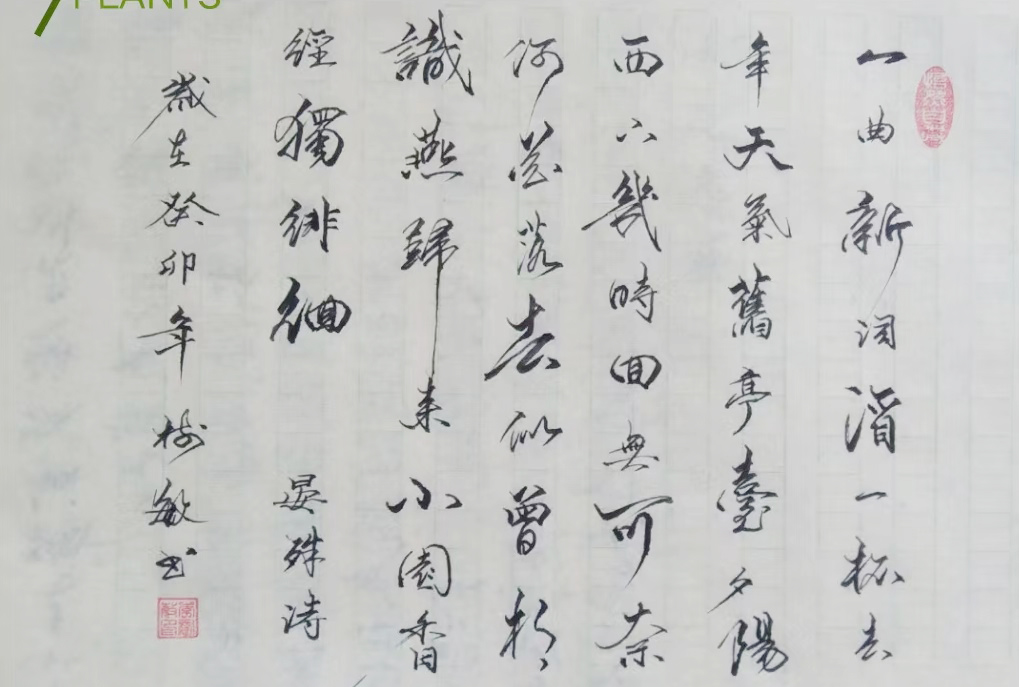 PLANTS
一曲新詞酒一杯去
年天氣舊亭臺夕陽
西下幾時回無可奈
何花落去似曾相
識燕歸來小園香
經獨徘徊 晏殊詩
歲在癸卯年樹敏书